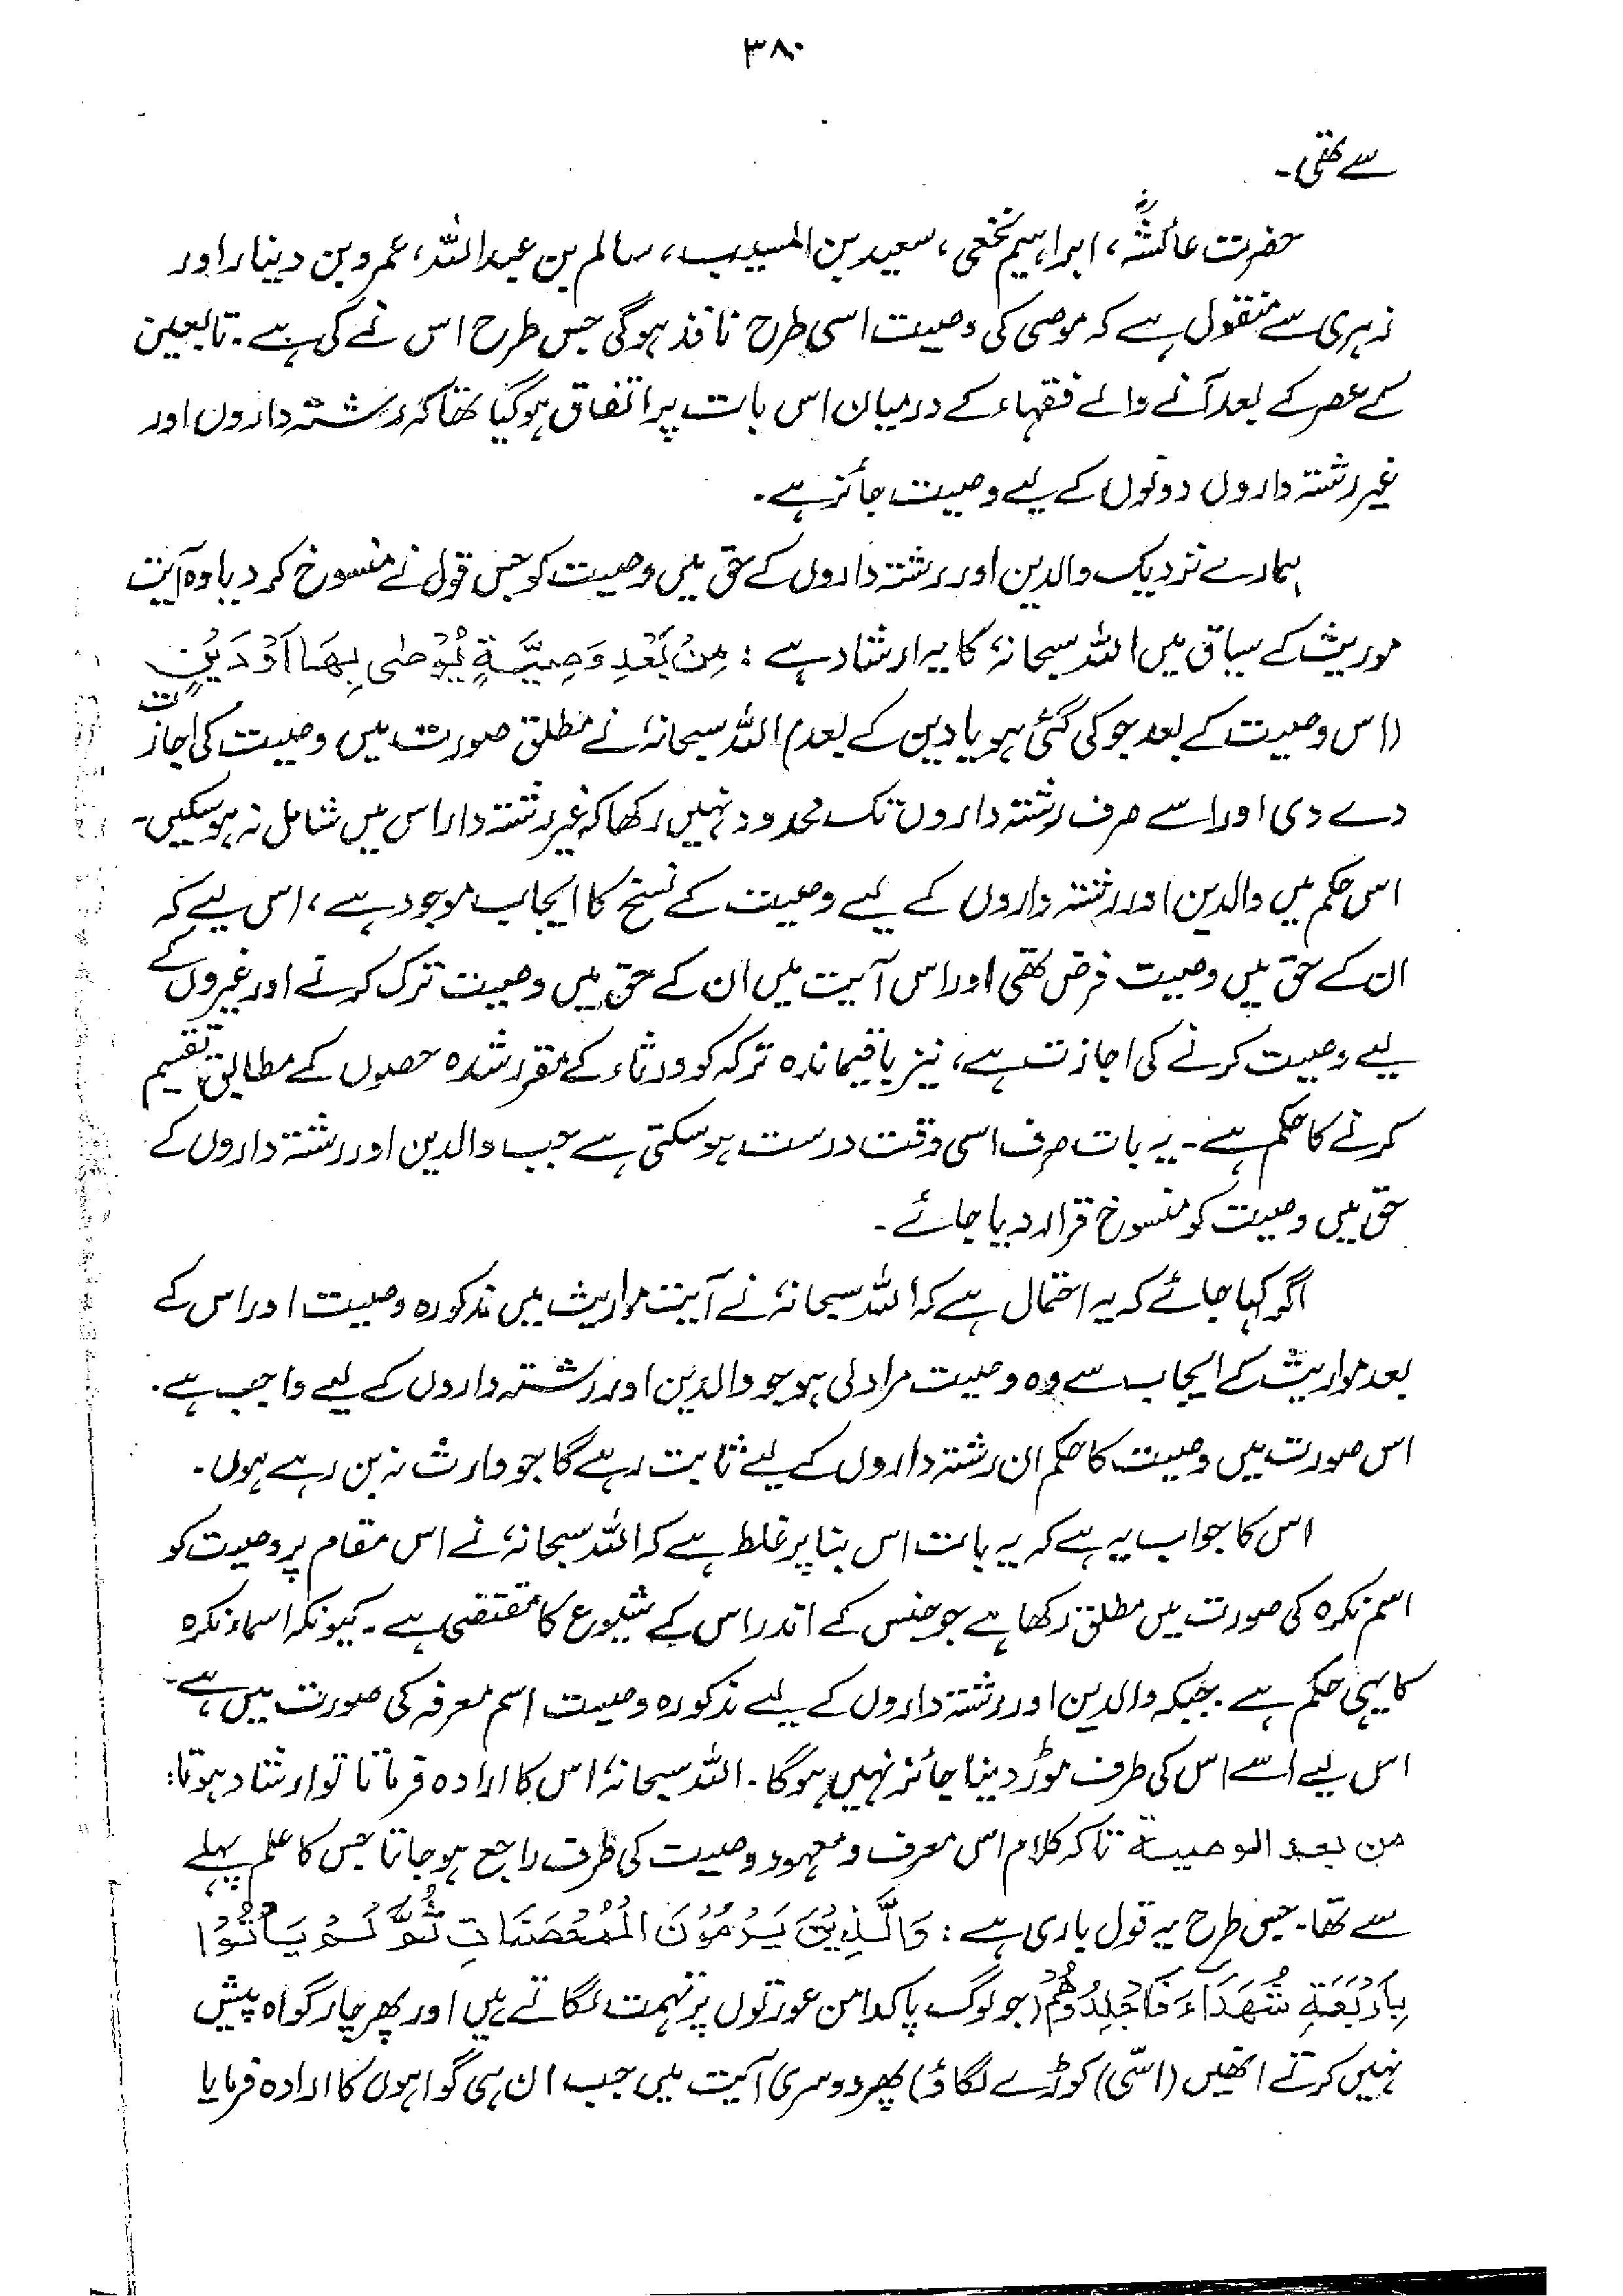 ۳۸۰
سے تھی۔
حضرت عائشہؓ، ابراہیم نخعی، سعید بن المسیب، سالم بن عبداللہ، عمرو بن دینار اور
زہری سے منقول ہے کہ موصی کی وصیت اسی طرح نافذ ہوگی جس طرح اس نے کی ہے۔ تابعین
کے عصر کے بعد آنے والے فقہاء کے درمیان اس بات پر اتفاق ہوگیا تھا کہ رشتہ داروں اور
غیر رشتہ داروں دونوں کے لیے وصیت جائز ہے۔
ہمارے نزدیک والدین اور رشتہ داروں کے حق میں وصیت کو جس قول نے منسوخ کر دیا وہ آیت
موریث کے سیاق میں اللہ سبحانہٗ کا یہ ارشاد ہے : مِنْ بَعْدِ وَصِيَّةٍ يُوْصٰى بِهَا اَوْ دَيْنٍ
(اس وصیت کے بعد جو کی گئی ہو یا دین کے بعد) اللہ سبحانہٗ نے مطلق صورت میں وصیت کی اجازت
دے دی اور اسے صرف رشتہ داروں تک محدود نہیں رکھا کہ غیر رشتہ دار اس میں شامل نہ ہوسکیں۔
اس حکم میں والدین اور رشتہ داروں کے لیے وصیت کے نسخ کا ایجاب موجود ہے، اس لیے کہ
ان کے حق میں وصیت فرض تھی اور اس آیت میں ان کے حق میں وصیت ترک کرنے اور غیروں کے
لیے وصیت کرنے کی اجازت ہے، نیز باقیماندہ ترکہ کو ورثاء کے مقرر شدہ حصوں کے مطابق تقسیم
کرنے کا حکم ہے۔ یہ بات صرف اسی وقت درست ہوسکتی ہے جب والدین اور رشتہ داروں کے
حق میں وصیت کو منسوخ قرار دیا جائے۔
اگر کہا جائے کہ یہ احتمال ہے کہ اللہ سبحانہٗ نے آیت مواریث میں مذکورہ وصیت اور اس کے
بعد مواریث کے ایجاب سے وہ وصیت مراد لی ہو جو والدین اور رشتہ داروں کے لیے واجب ہے۔
اس صورت میں وصیت کا حکم ان رشتہ داروں کے لیے ثابت رہے گا جو وارث نہ بن رہے ہوں۔
اس کا جواب یہ ہے کہ یہ بات اس بنا پر غلط ہے کہ اللہ سبحانہٗ نے اس مقام پر وصیت کو
اسم نکرہ کی صورت میں مطلق رکھا ہے جو جنس کے اندر اس کے شیوع کا مقتضی ہے۔ کیونکہ اسماء نکرہ
کا یہی حکم ہے۔ جبکہ والدین اور رشتہ داروں کے لیے مذکورہ وصیت اسم معرفہ کی صورت میں ہے۔
اس لیے اسے اس کی طرف موڑ دینا جائز نہیں ہوگا۔ اللہ سبحانہٗ اس کا ارادہ فرماتا تو ارشاد ہوتا:
من بعد الوصیۃ تاکہ کلام اس معرف و معہود وصیت کی طرف راجع ہو جاتا جس کا علم پہلے
سے تھا۔ جس طرح یہ قول باری ہے : وَالَّذِيْنَ يَرْمُوْنَ الْمُحْصَنَاتِ ثُمَّ لَمْ يَأْتُوْا
بِأَرْبَعَةِ شُهَدَاءَ فَاجْلِدُوْهُمْ (جو لوگ پاکدامن عورتوں پر تہمت لگاتے ہیں اور پھر چار گواہ پیش
نہیں کرتے انھیں (اسّی) کوڑے لگاؤ) پھر دوسری آیت میں جب ان ہی گواہوں کا ارادہ فرمایا